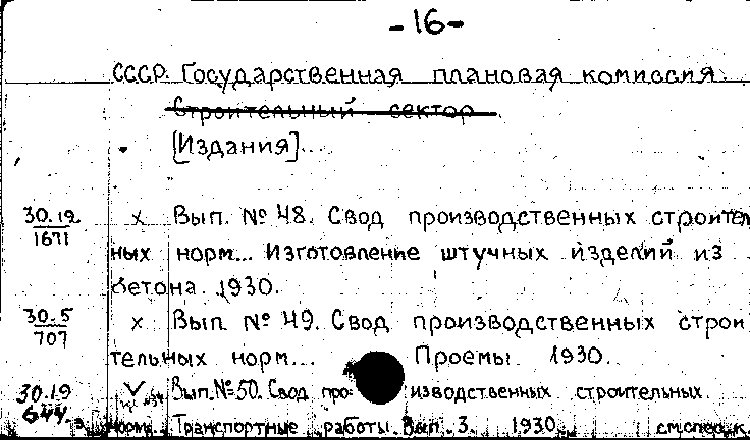 -16-
СССР. Государственная плановая комиссия
Строительный сектор
[Издания]...
30.19 х Вып. № 48. Свод производственных строитель
1671
ных норм... Изготовление штучных изделий из
бетона. 1930.
30.5 х Вып. № 49. Свод производственных строи
707
тельных норм... Проемы. 1930.
30.19 V Вып. № 50. Свод про- изводственных строительных
644
норм. Транспортные работы. Вып. 3. 1930